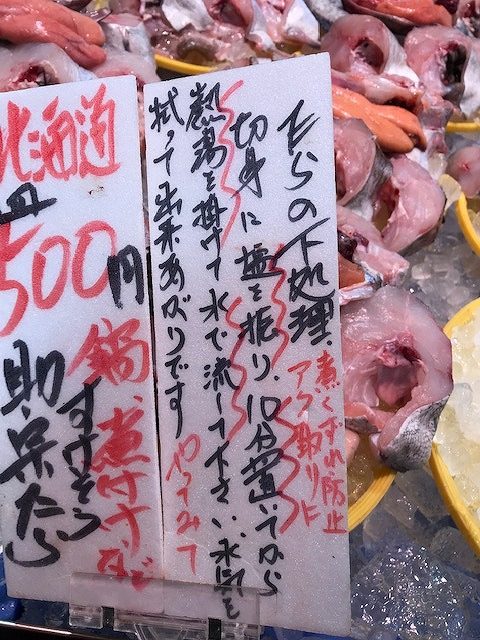 たらの下処理、
煮くずれ防止
アク取りに
切身に塩を振り、10分置いてから
熱湯を掛けて水で流して下さい、水気を
拭って出来あがりです
やってみて
北海道
500円
鍋、煮付す、など
すけそうら
助宗たら